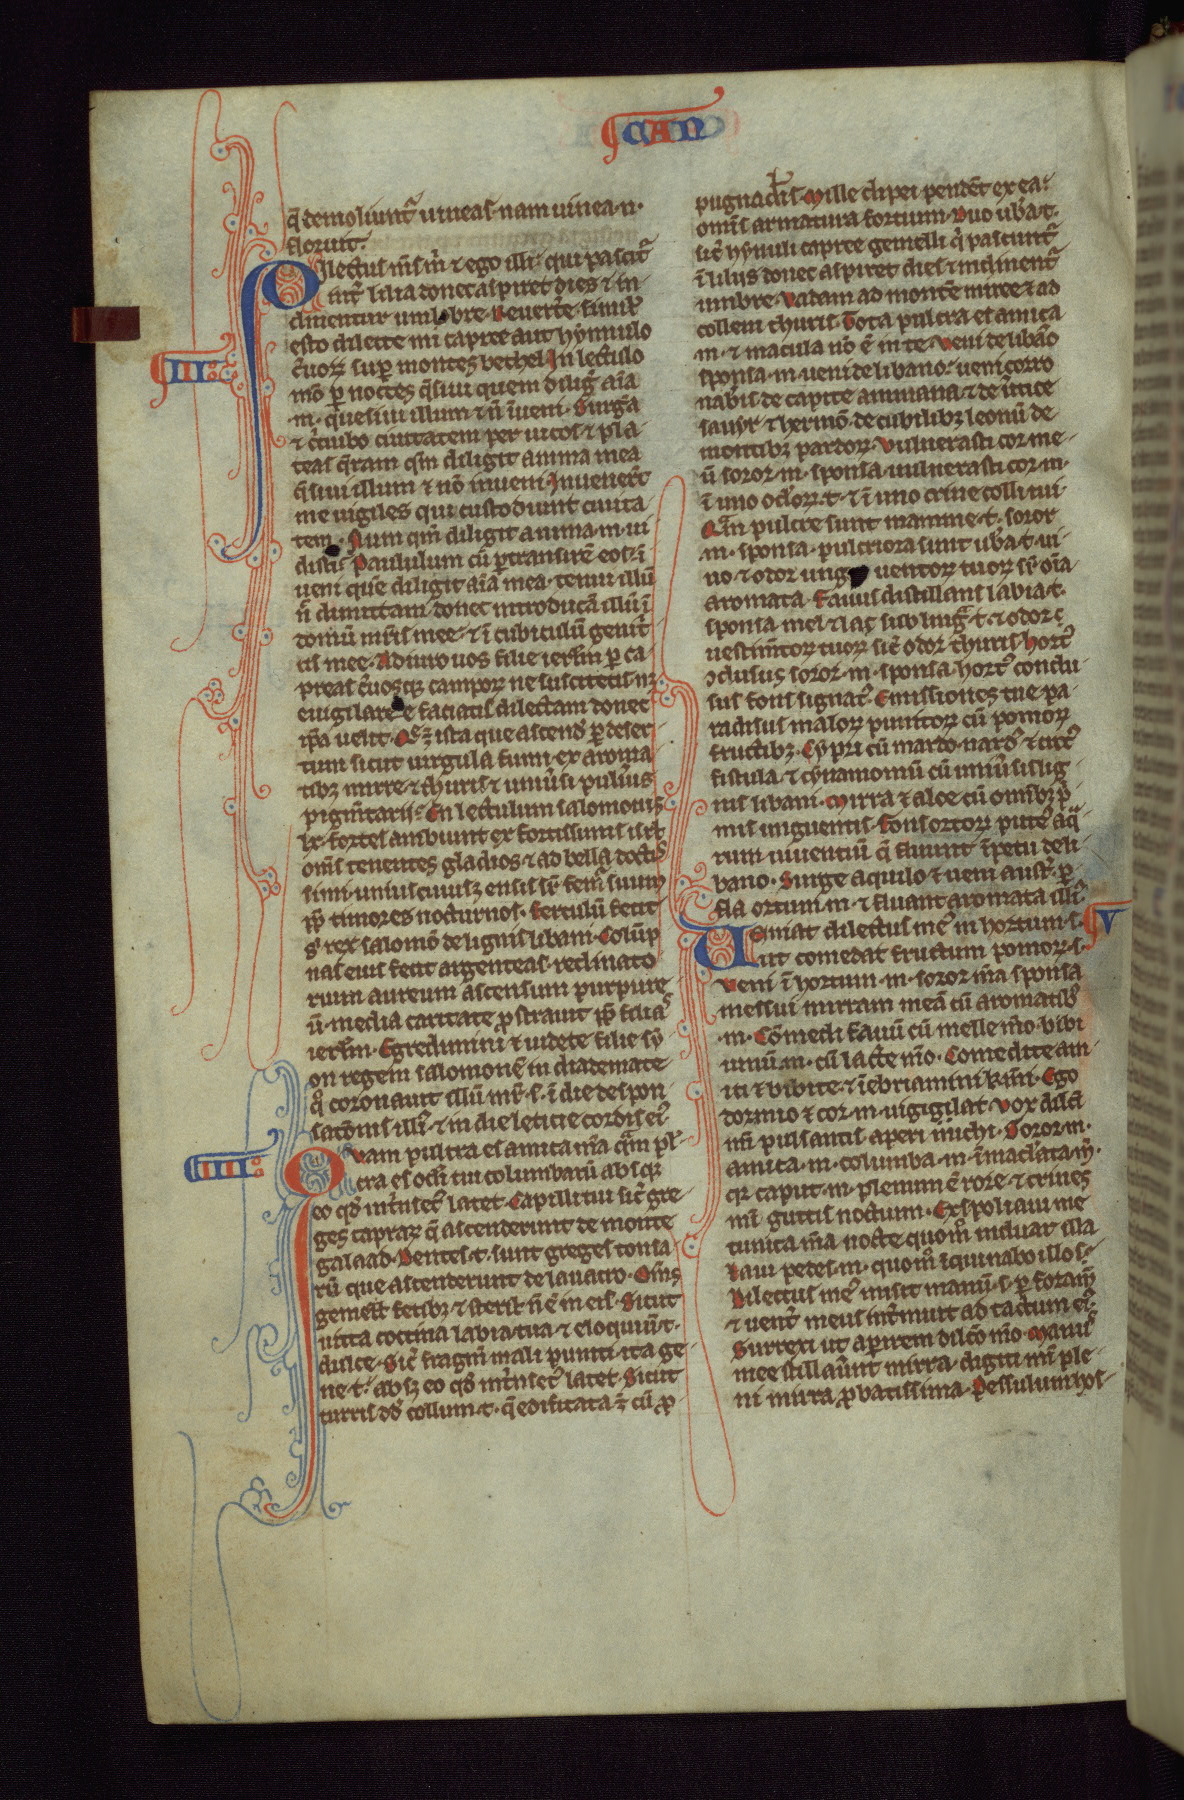 CAN
q̄ demoliunt᷑ uineas· nam uinea n̄·
floruit·
Dilectus m̄s m̄ ⁊ ego illi· qui pascit᷑
int᷑ lilia donec aspiret dies ⁊ in
clinentur umbre· Reuert̄e· similis
esto dilecte mi capree aut hỹnnulo
c̄uoꝝ sup̄ montes bethel· In lectulo
III
mō ꝑ noctes q̄siui quem diliḡ aīa
m· quesiui illum ⁊ n̄ īueni· Surgā
⁊ c̄cuibo ciuitatem per uicos ⁊ pla-
teas q̄ram qm̄ diligit anima mea
q̄siui illum ⁊ nō inueni· Inuener̄t
me uigiles qui custodiunt ciuita-
tem· Num qm̄ diligit anima· m· ui
distis· Paululum cū ꝑtransirē eos· ī
ueni quē diligit aīa mea· tenui illū
n̄ dimittam· donec introducā illū ī
domū mr̄is mee· ⁊ ī cubiculū genit᷑
cis mee· Adiuro uos filie ierl̄m ꝑ ca-
preas c̄uosqꝫ campoꝝ ne suscitetis nꝫ
euigilare faciatis dilectam donec
ip̄a uelit· Q̄ ē ista que ascend᷑ ꝑ deser-
tum sicut uirgula fumi ex aroma-
tibꝫ mirre ⁊ thuris ⁊ uniūsi pul̄uis
pigm̄tarii· En lectulum salomonis
lx· fortes ambiunt ex fortissimis isr̄l
om̄s tenentes gladios ⁊ ad bella docti
simi· uniuscuiusꝫ ensis sr̄ fem᷑ suum
ꝓp̄ timores nocturnos· Ferculū fecit
s᷑ rex salomō de lignis libani· Colūp
nas eius fecit argenteas· reclinato
rium aureum ascensum purpure
ū· media caritate ꝯstrauit ꝓp̄ filias
ierl̄m· Egredimini ⁊ uidete filie sy-
on regem salomonē in diademate
q̊ coronauit illū mr̄ s· ī die despon
sacōnis illi᷑· ⁊ in die leticie cordis ei᷑
IIII
Quam pulcra es amica m̄a q̄m pl᷑-
cra es oc̄li tui columbarū absqꝫ
eo qd̄ int̄nsec᷑ latet· Capilli tui sic̄ gre-
ges capraꝝ q̄ ascenderunt de monte
galaad· Dentes· t· sunt greges tonsa-
rū que ascenderunt de lauacro· Om̄s
gemell᷑ fetibꝫ ⁊ steril᷑ n̄ ē in eis· Sicut
uitta coccina labia tua ⁊ eloquiū· t·
dulce· Sic̄ fragm̄ mali puniti· ita ge-
ne· t· absꝫ eo qd̄ int̄nsec᷑ latet· Sicut
turris dd̄ collum· t· q̄ edificata ē cū ꝓ
pugnac̄lis· Mille clipei pendēt ex ea·
om̄is armatura fortium· Duo ub̄a· t·
sic̄ hỹnuli capree gemelli q̄ pascunt᷑
ī lilijs donec aspiret dies ⁊ inclinent᷑
umbre· Vadam ad montē mirre ⁊ ad
collem thuris· Tota pulcra es amica
m· ⁊ macula nō ē in te· Veni de libāo
sponsa· m· ueni de libano· ueni coro
nabis· de capite ammana ⁊ de ūtice
sanyr ⁊ hermō· de cubilibꝫ leonū de
montibꝫ pardoꝝ· Vulnerasti cor me-
ū soror· m· sponsa· uulnerasti cor· m·
ī uno oc̄loꝝ· t· ⁊ ī uno crine colli tui·
Q̄m pulcre sunt mamme· t· soror
m· sponsa· pulcriora sunt ub̄a· t· ui-
no ⁊ odor unguentoꝝ tuoꝝ sr̄ oīa
aromata· Fauus distillans labia· t·
sponsa· mel ⁊ lac sub linḡ· t· ⁊ odor
uestim̄toꝝ tuoꝝ sic̄ odor thuris· Hort᷑
ꝯclusus soror· m· sponsa· hort᷑ conclu-
sus fons signat᷑· Emissiones tue pa-
radisus maloꝝ punitoꝝ cū pomoꝝ
fructibꝫ· Cypri cū nardo· nard᷑ ⁊ croc᷑
fistula ⁊ cynamomū cū uniūsis lig-
nis libani· Mirra ⁊ aloe cū omībꝫ p̄-
mis unguentis· Fons ortoꝝ pute᷑ aq̄-
rum uiuentiū q̄ fluunt īpetu de li-
bano· Surge aquilo ⁊ ueni aust᷑· ꝑ-
fla ortum· m· ⁊ fluant aromata illi᷑
V
Veniat dilectus me᷑ in hortum· s·
ut comedat fructum pomoꝝ· s·
Veni ī hortum· m· soror m̄a sponsa
messui mirram meā cū aromatibꝫ
m· Cōmedi fauū cū melle m̄o· bibi
uinū· m· cū lacte m̄o· Comedite am-
ici ⁊ bibite· ⁊ īebriamini k̄mi· Ego
dormio ⁊ cor· m· uigigilat· Vox dilc̄i
m̄i pulsantis· aperi michi· Soror· m·
amica· m· columba· m· īmac̄lata· m·
qꝛ caput· m· plenum ē rore ⁊ crines
m̄i guttis noctium· Expoliaui me
tunica m̄a nocte quom̊ induar illa
Laui pedes· m· quom̊ īquinabo illos·
Dilectus me᷑ misit manū· s· ꝑ foramē
⁊ uent᷑ meus int̄muit ad tactum ei᷑·
Surrexi ut aperirem dilc̄o m̄o· Man᷑
mee stillauer̄t mirra· digiti m̄i ple-
ni mirra ꝓbatissima· Pessulum hos-